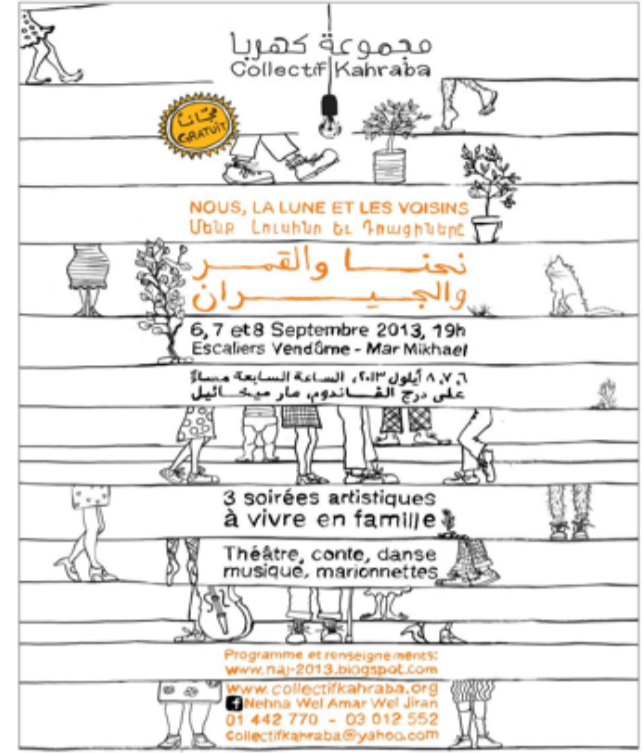 مجموعة كهربا
Collectif Kahraba
مجّاناً
GRATUIT
NOUS, LA LUNE ET LES VOISINS
Մենք Լուսինն եւ Դրացիները
نحنا والقمر
والجيران
6, 7 et 8 Septembre 2013, 19h
Escaliers Vendôme - Mar Mikhael
٦، ٧، ٨ أيلول ٢٠١٣، الساعة السابعة مساءً
على درج الڤاندوم، مار ميخائيل
3 soirées artistiques
à vivre en famille
Théâtre, conte, danse
musique, marionnettes
Programme et renseignements:
www.naj-2013.blogspot.com
www.collectifkahraba.org
Nehna Wel Amar Wel Jiran
01 442 770 - 03 012 552
collectifkahraba@yahoo.com